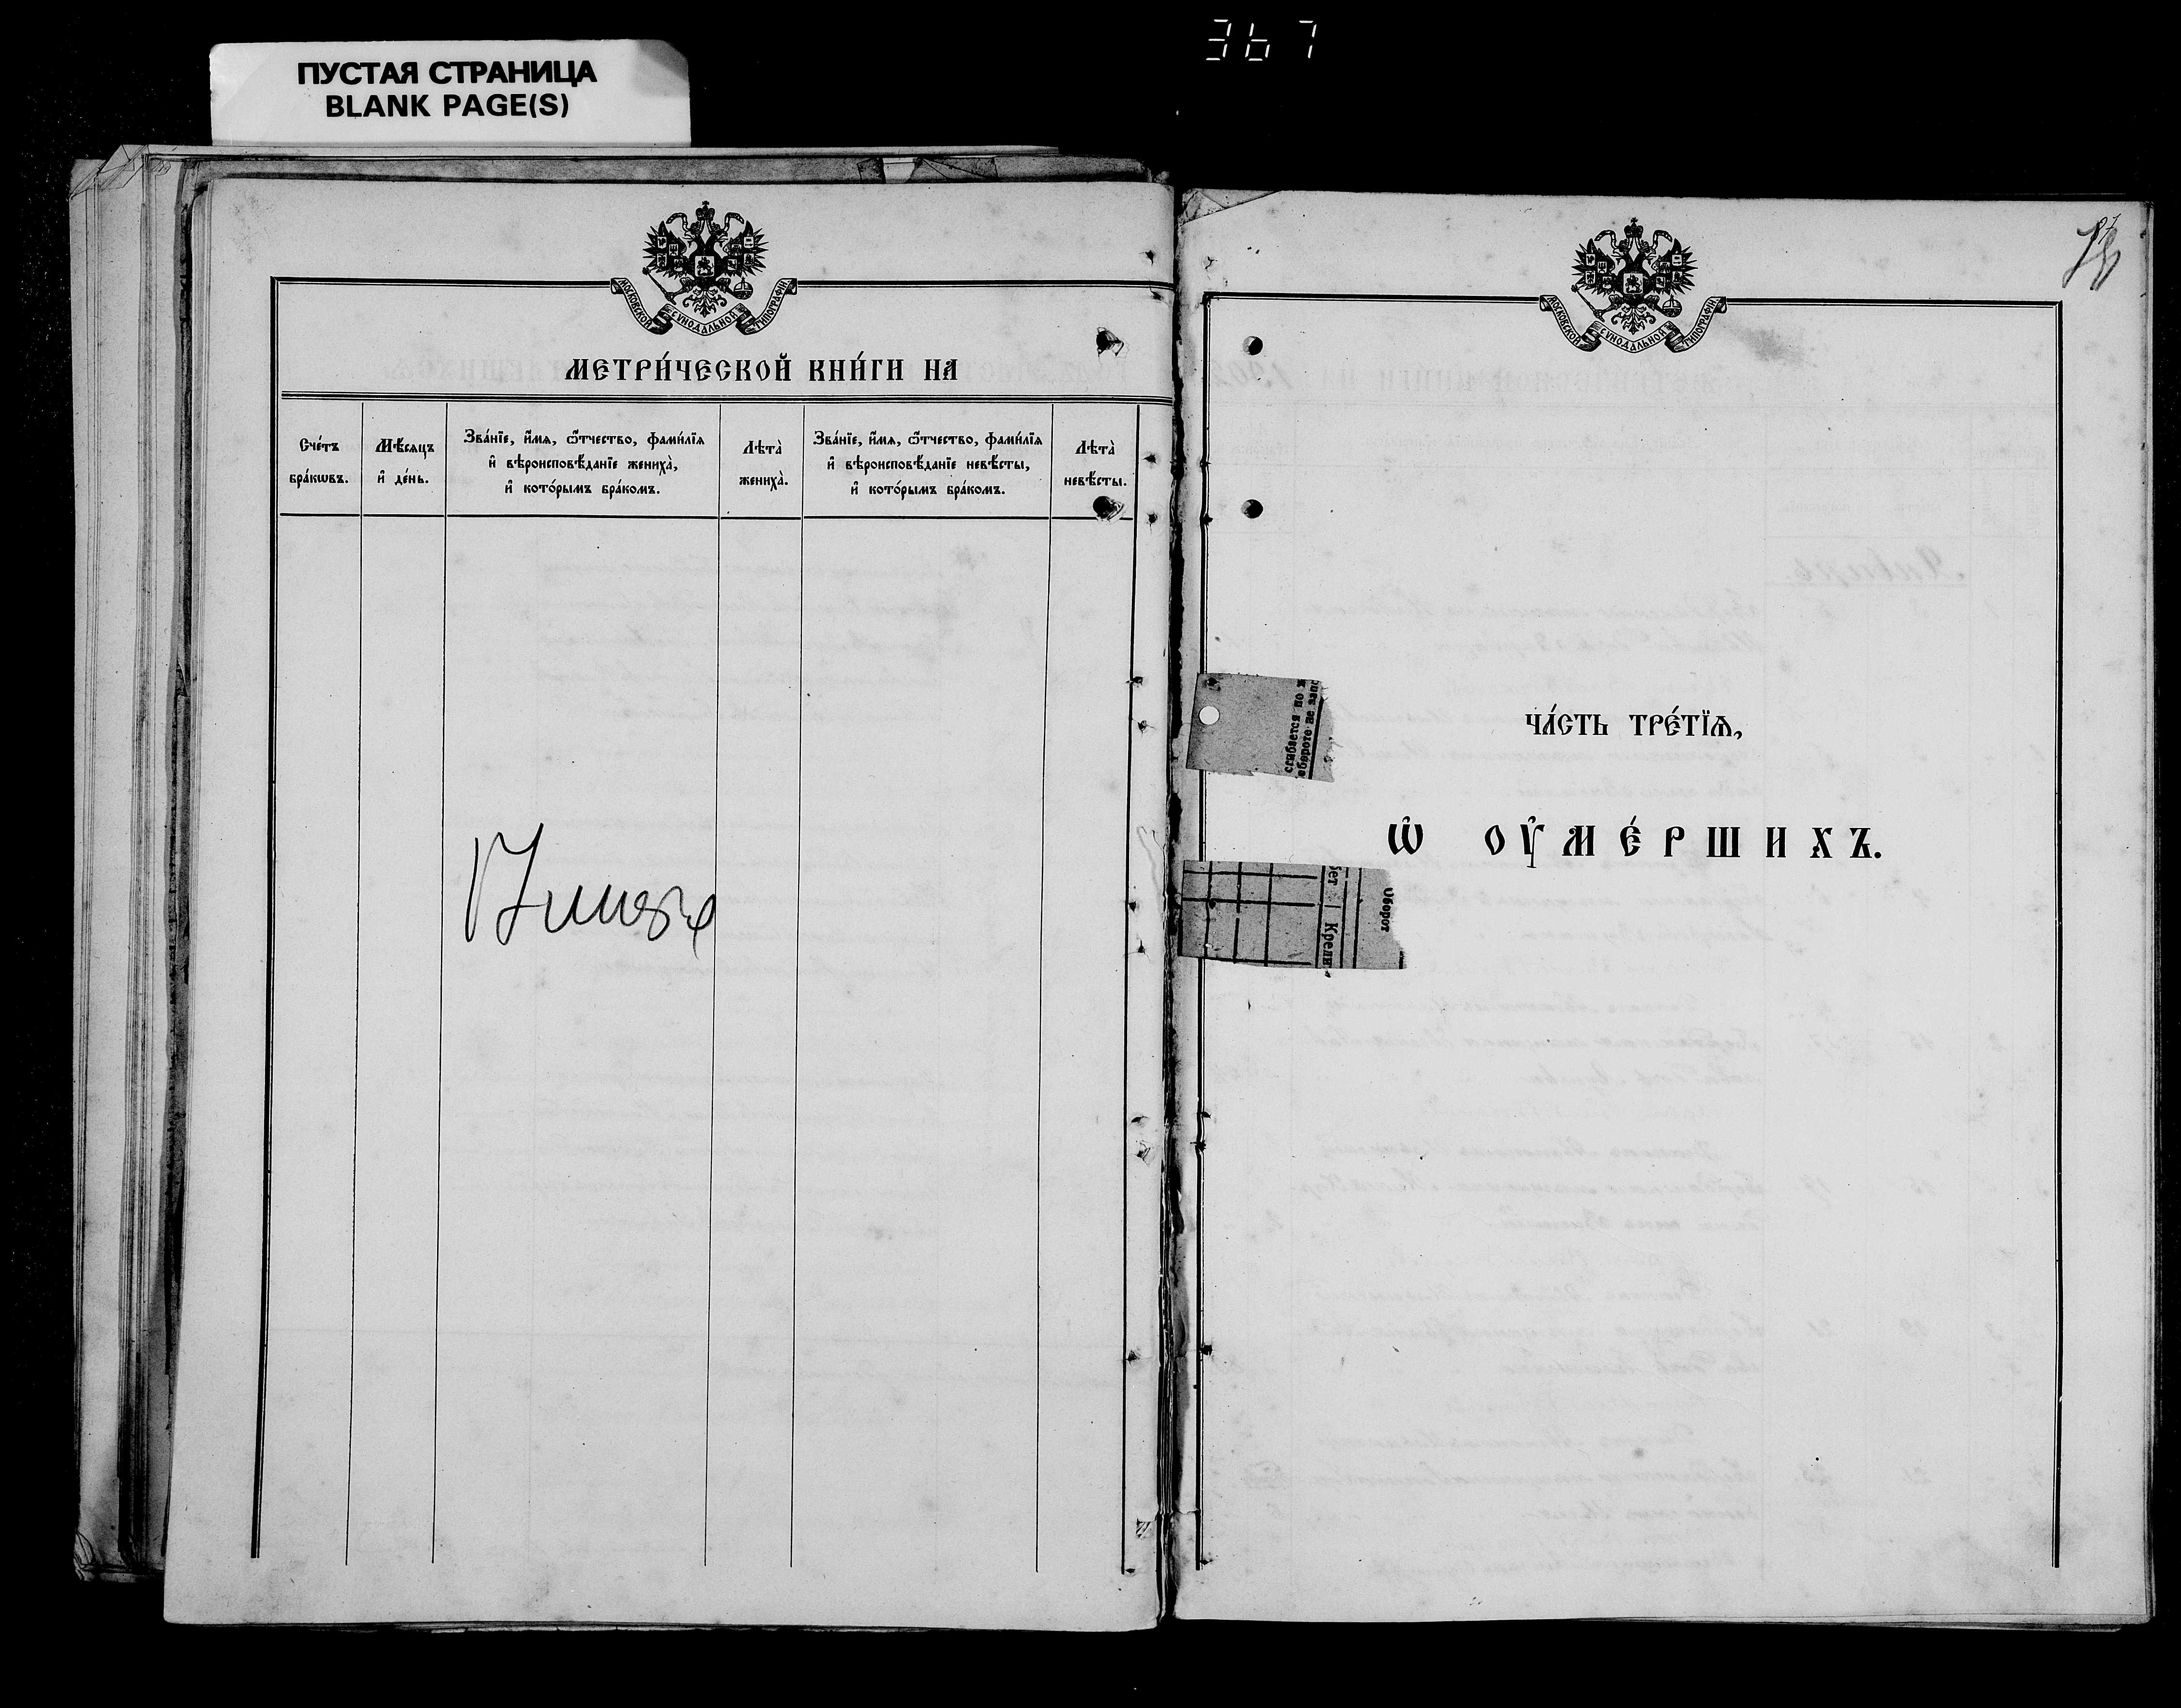 367
ПУСТАЯ СТРАНИЦА
BLANK PAGE(S)
МОСКОВСКОЙ СѴНОДАЛЬНОЙ ТИПОГРАФІИ
МЕТРИ́ЧЕСКОЙ КНИ́ГИ НА
Сче́тъ бра́кѡвъ.
Мѣ́сяцъ и҆ де́нь.
Зва́нїе, и҆́мѧ, ѻ҆́тчество, фами́лїѧ
и҆ вѣроисповѣ́данїе жениха̀,
и҆ кото́рымъ бра́комъ.
Лѣта̀ жениха̀.
Зва́нїе, и҆́мѧ, ѻ҆́тчество, фами́лїѧ
и҆ вѣроисповѣ́данїе невѣ́сты,
и҆ кото́рымъ бра́комъ.
Лѣта̀ невѣ́сты.
МОСКОВСКОЙ СѴНОДАЛЬНОЙ ТИПОГРАФІИ
ЧА́СТЬ ТРЕ́ТЇѦ,
Ѡ҆ ОУ҆МЕ́РШИХЪ.
сгибается по
обороте не запо
Оборот